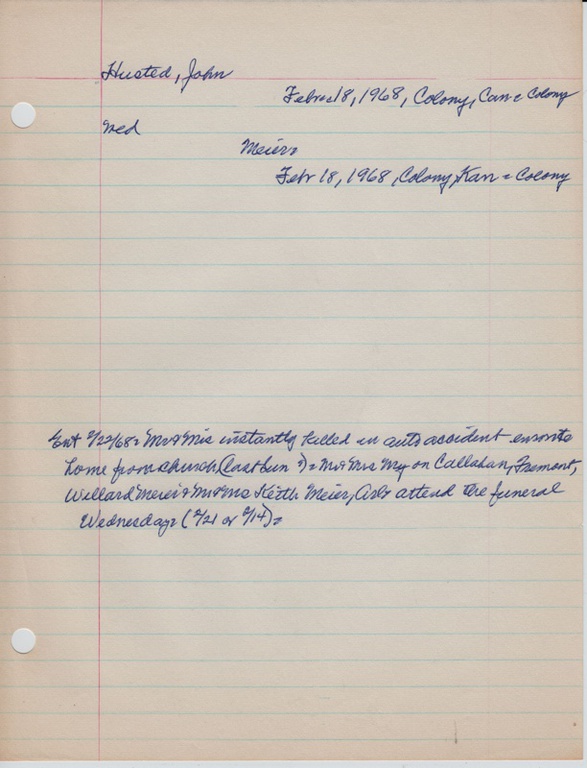 Husted, John
Febr 18, 1968, Colony, Can = Colony
wed
Meier =
Febr 18, 1968, Colony, Kan = Colony
Ent 2/22/68 = Mr & Mrs instantly killed in auto accident enroute
home from church (last Sun ?) = Mr & Mrs on Callahan, Fremont,
Willard Meier & Mr & Ms Keith Meier, Arb attend the funeral
Wednesday = (2/21 or 2/14) =